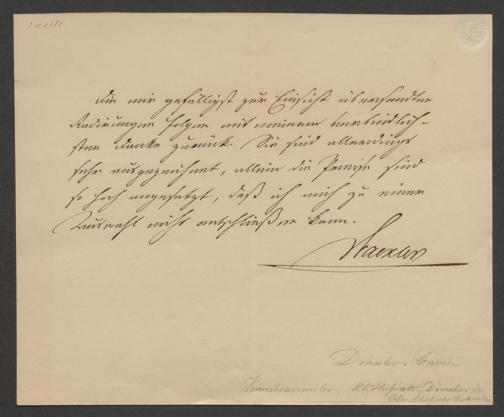 die mir gefälligst zur Einsicht übersandten
Radirungen folgen mit meinem verbindlich-
sten Danke zurück. Sie sind allerdings
sehr ausgezeichnet, allein die Preise sind
so hoch angesetzt, daß ich mich zu einer
Auswahl nicht entschließen kann.
Kunstsammler, KK Hofrath, Direktor des